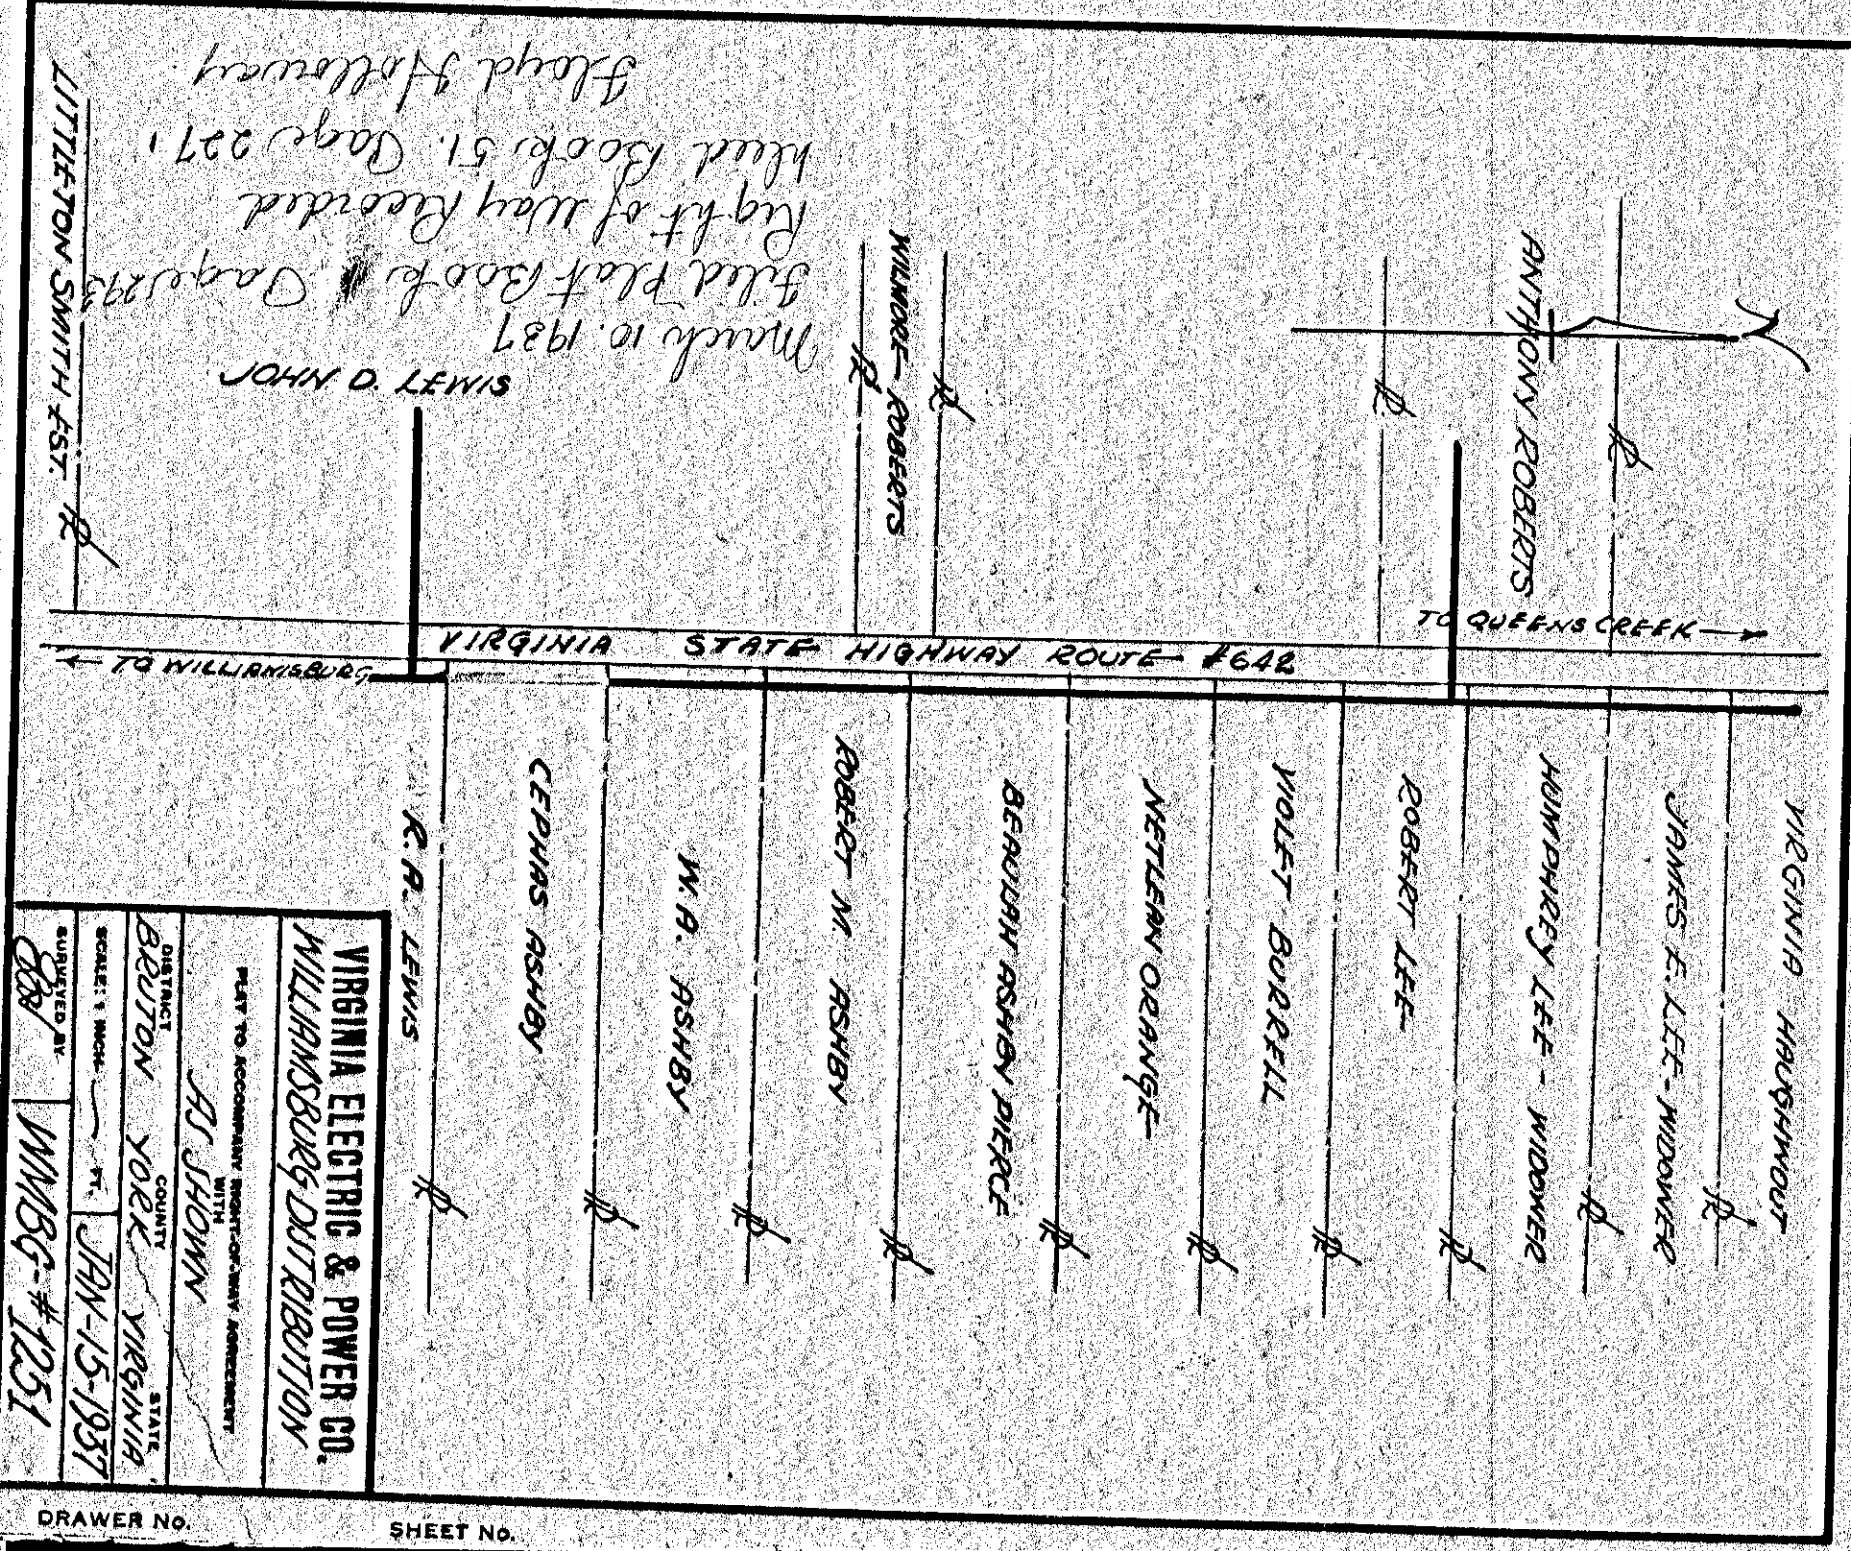 March 10. 1937
Filed Plat Book Page 293
Right of Way Recorded
Deed Book 51. Page 227.
Floyd Holloway
LITTLETON SMITH EST.
JOHN D. LEWIS
WILMORE ROBERTS
ANTHONY ROBERTS
TO QUEENS CREEK
VIRGINIA STATE HIGHWAY ROUTE #642
TO WILLIAMSBURG
R. A. LEWIS
CEPHAS ASHBY
W. A. ASHBY
ROBERT M. ASHBY
BEAULAH ASHBY PIERCE
NETLEAN ORANGE
VIOLET BURRELL
ROBERT LEE
HUMPHREY LEE - WIDOWER
JAMES E. LEE - WIDOWER
VIRGINIA HAUGHWOUT
VIRGINIA ELECTRIC & POWER CO.
WILLIAMSBURG DISTRIBUTION
PLAT TO ACCOMPANY RIGHT-OF-WAY AGREEMENT
WITH
AS SHOWN
DISTRICT COUNTY STATE
BRUTON YORK VIRGINIA
SCALE: 1 INCH FT. JAN-15-1937
SURVEYED BY
WMBG-#1251
DRAWER NO. SHEET NO.